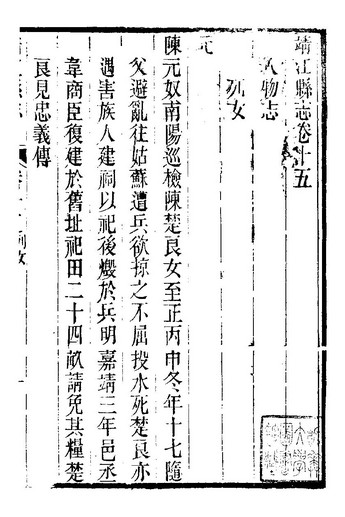 靖江縣志卷十五
人物志
列女
元
陳元奴南陽巡檢陳楚良女至正丙申冬年十七隨
父避亂往姑蘇遭兵欲掠之不屈投水死楚良亦
遇害族人建祠以祀後燬於兵明嘉靖三年邑丞
韋商臣復建於舊址祀田二十四畝請免其糧楚
良見忠義傳